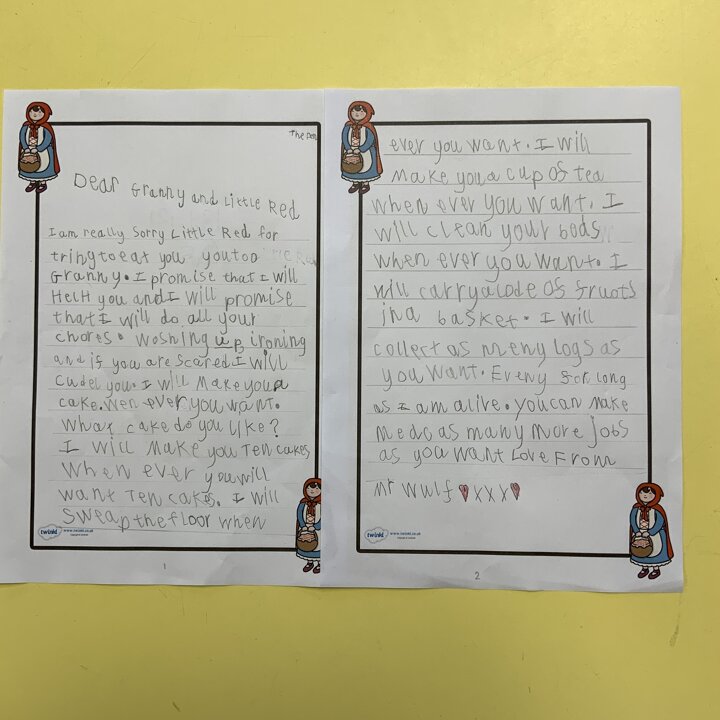 The
Dear Granny and Little Red
I am really Sorry Little Red for
tringtoeat you youtoo
Granny. I promise that I will
HelH you and I will promise
that I will do all your
chores. woshing up ironing
and if you are scared I will
cudel you. I will Make you a
cake. wen ever you want.
What cake do you like?
I will make you Ten cakes
when ever you will
want Ten cakes. I will
Sweap the floor when
twinkl www.twinkl.co.uk
1
ever you want. I will
Make you a cup of tea
when ever you want. I
will clean your beds
when ever you want. I
will carry a lode of fruots
in a basket. I will
collect as meny logs as
you want. Eveny for long
as I am alive. You can Make
Me do as many more jobs
as you want Love From
Mr Wulf xxx
twinkl www.twinkl.co.uk
2